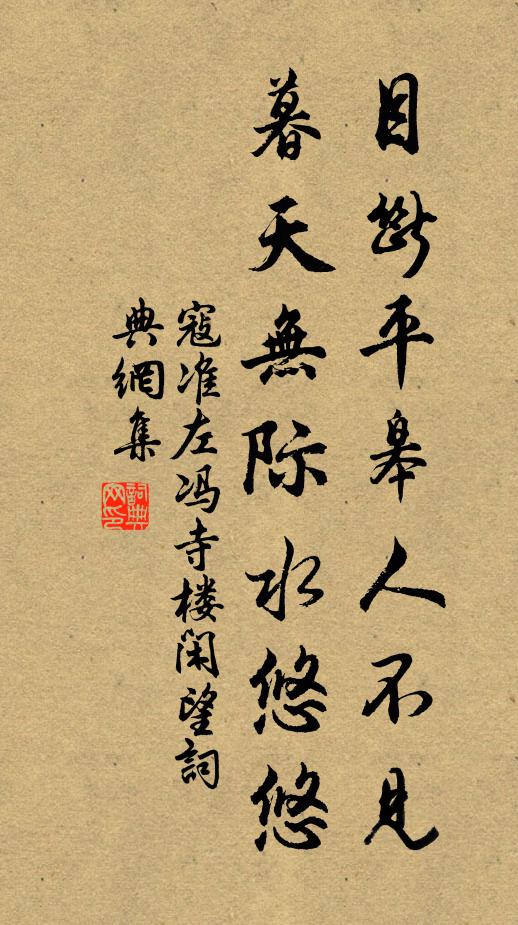 目断平皋人不见
暮天無际水悠悠
寇准左冯寺楼闲望詞
典網集
詞典
网印